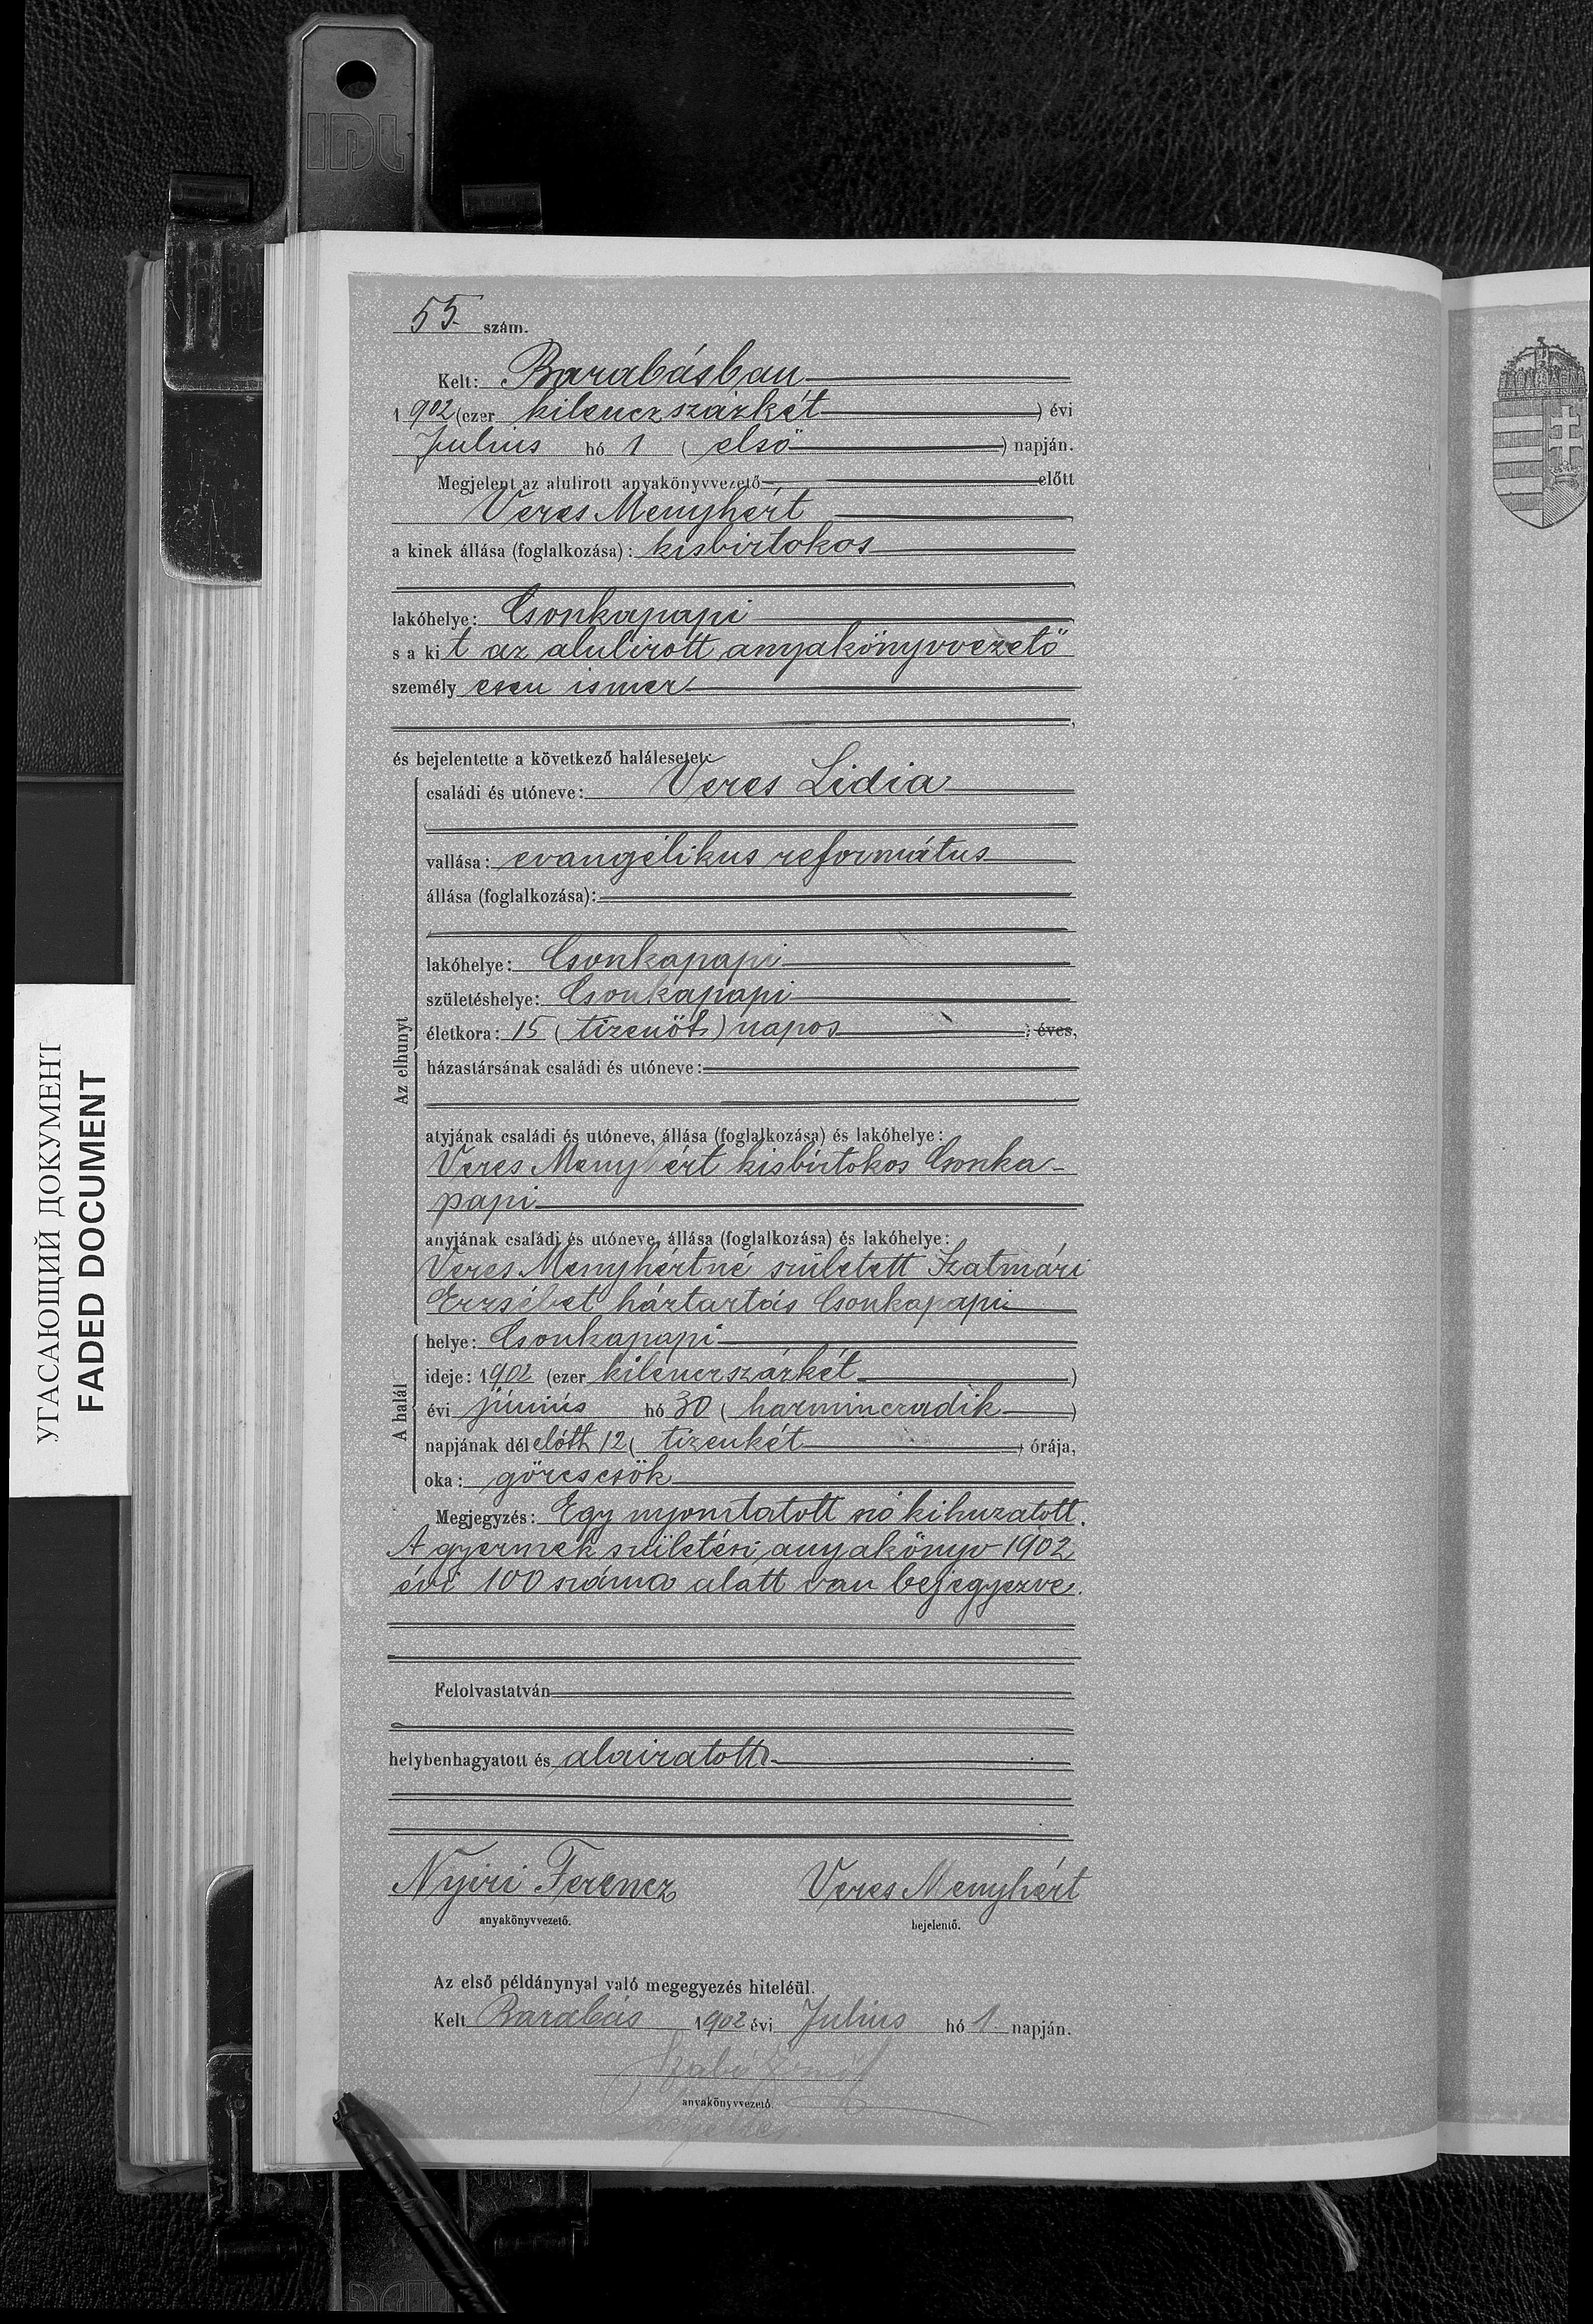 IDL
55. szám.
Kelt: Barabásban
1902 (ezer kilenczszázkét ) évi
Julius hó 1 ( első ) napján.
Megjelent az alulirott anyakönyvvezető előtt
Veres Menyhért
a kinek állása (foglalkozása): kisbirtokos
lakóhelye: Csonkapapi
s a kit az alulirott anyakönyvvezető
személyesen ismer
és bejelentette a következő halálesetet:
családi és utóneve: Veres Lidia
vallása: evangélikus református
állása (foglalkozása):
lakóhelye: Csonkapapi
születéshelye: Csonkapapi
életkora: 15 ( tizenöt ) napos éves,
házastársának családi és utóneve:
atyjának családi és utóneve, állása (foglalkozása) és lakóhelye:
Veres Menyhért kisbirtokos Csonka-
papi
anyjának családi és utóneve, állása (foglalkozása) és lakóhelye:
Veres Menyhértné született Szatmári
Erzsébet háztartás Csonkapapi
Az elhunyt
helye: Csonkapapi
ideje: 1902 (ezer kilenczszázkét )
évi június hó 30 ( harminczadik )
napjának délelőtt 12 ( tizenkét ) órája,
oka: görcsesök
A halál
Megjegyzés: Egy nyomtatott szó kihuzatott.
A gyermek születési anyakönyv 1902
évi 100 száma alatt van bejegyezve.
Felolvastatván
helybenhagyatott és aláiratott
Nyiri Ferencz Veres Menyhért
anyakönyvvezető. bejelentő.
Az első példánynyal való megegyezés hiteléül.
Kelt Barabás 1902 évi Julius hó 1 napján.
Szabó Ernő
anyakönyvvezető
УГАСАЮЩИЙ ДОКУМЕНТ
FADED DOCUMENT